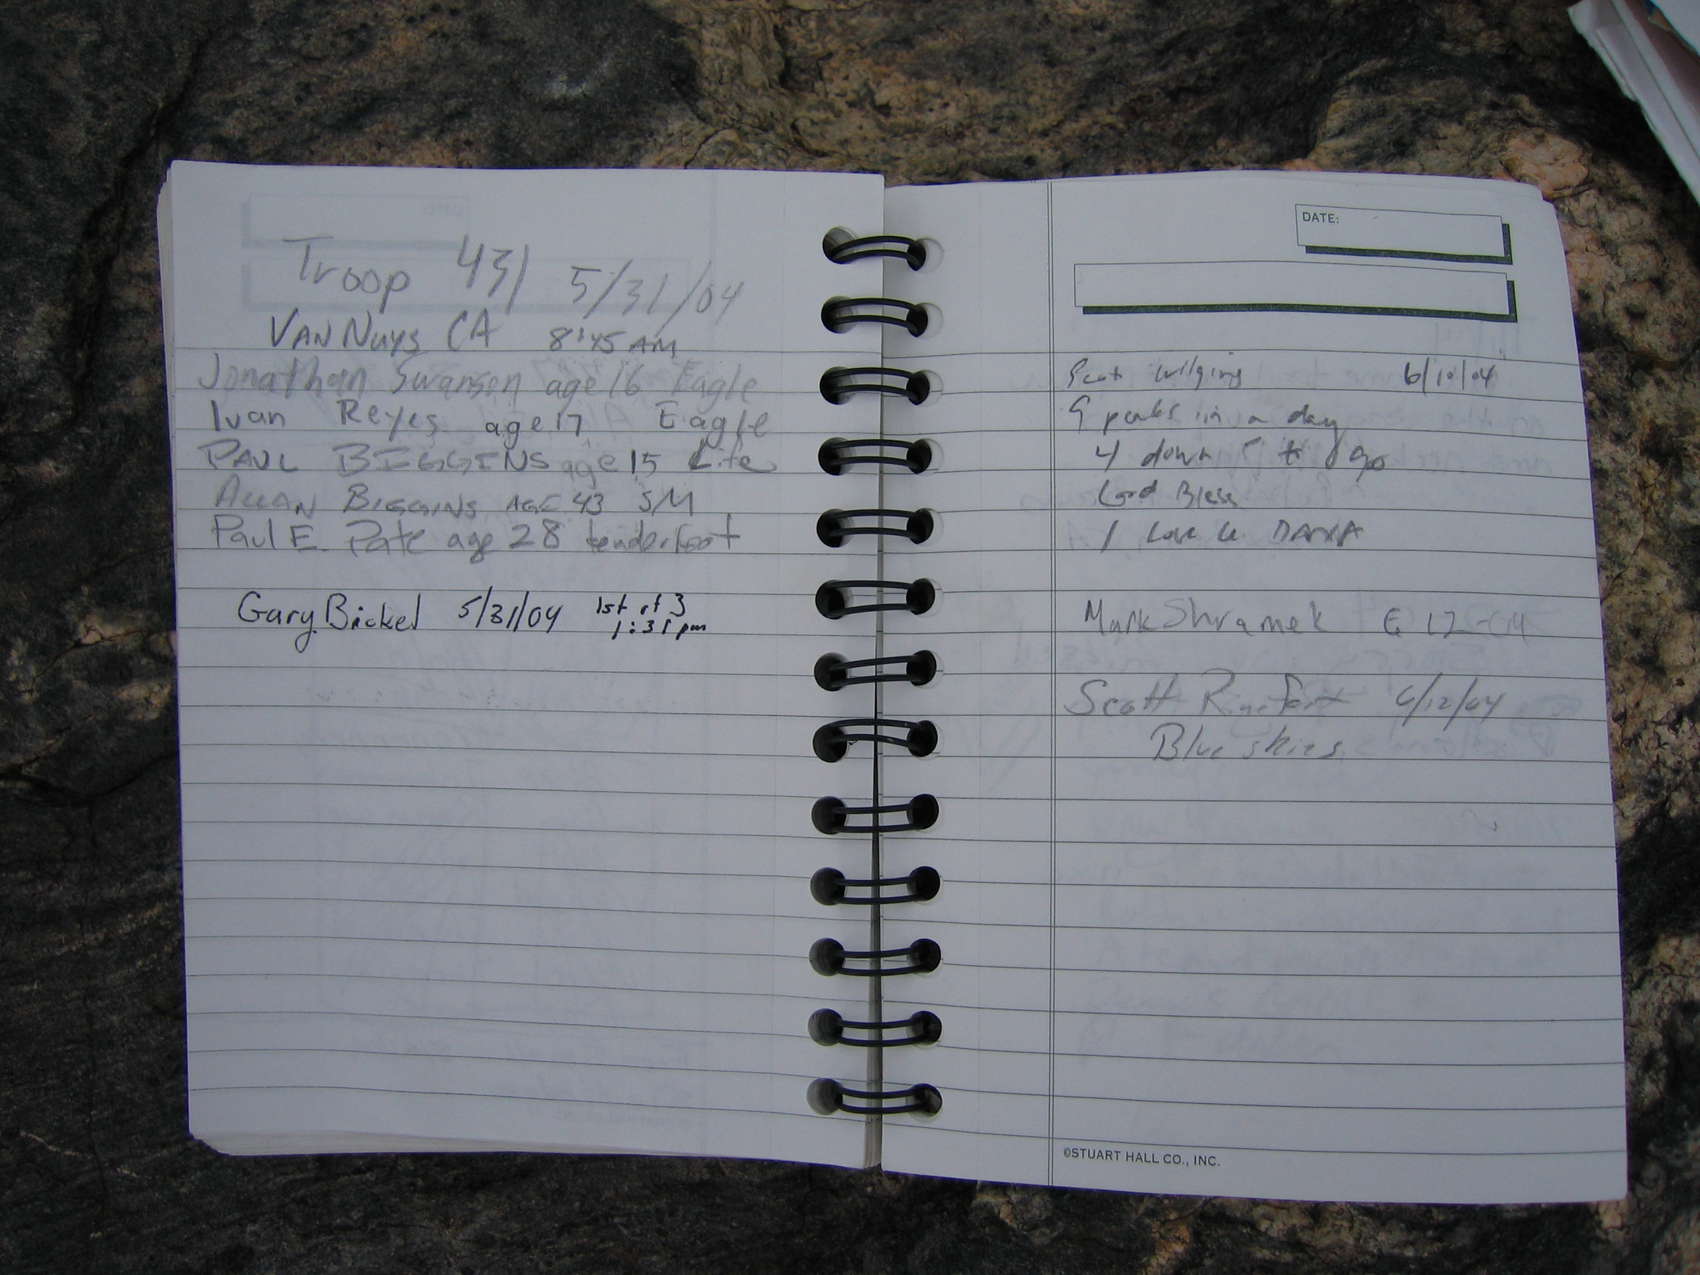 Troop 431 5/31/04
VAN NUYS CA 8:45 AM
Jonathan Swansen age 16 Eagle
Ivan Reyes age 17 Eagle
PAUL BIGGINS age 15 Life
ALLAN BIGGINS AGE 43 SM
Paul E. Pate age 28 tenderfoot
Gary Bickel 5/31/04 1st of 3
1:31 pm
DATE:
6/10/04
9 peaks in a day
4 down 5 to go
Lord Bless
I Love U DANA
Mark Shramek 6-12-04
Scott 6/12/04
Blue skies
©STUART HALL CO., INC.